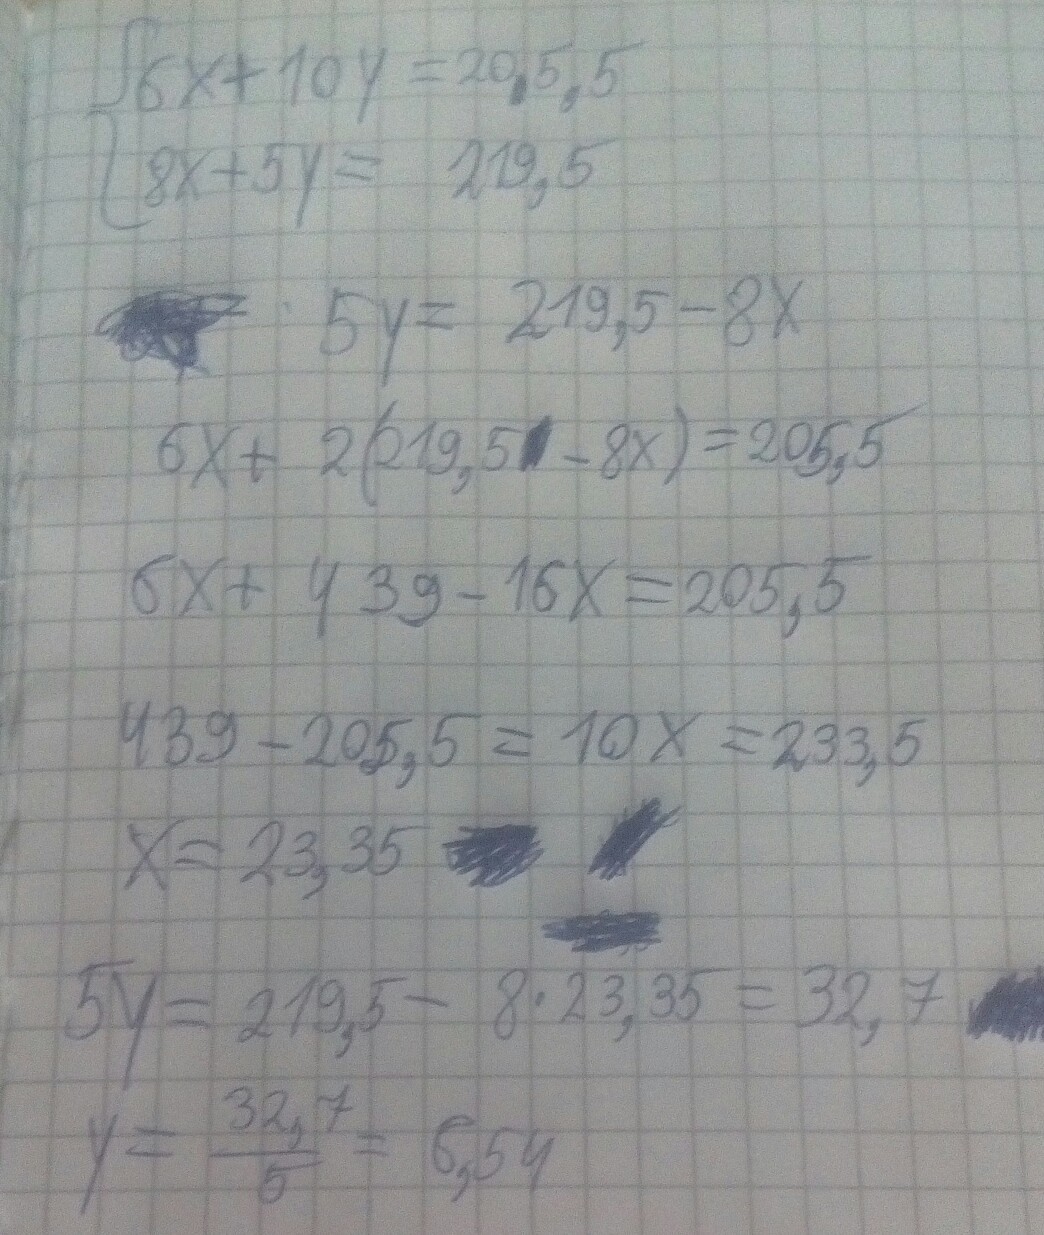 6x+10y=205,5
8x+5y= 219,5
5y= 219,5-8x
6x+ 2(219,5 -8x)=205,5
6x+ 439-16x=205,5
439-205,5=10x=233,5
x=23,35
5y=219,5- 8·23,35=32,7
y= 32,7/5 = 6,54